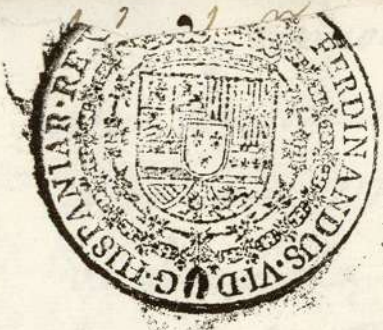 FERDINANDUS·VI·D·G·HISPANIAR·RE